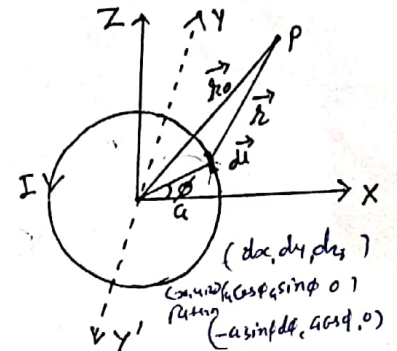 Z
Y
P
r⃗₀
r⃗
dl⃗
I
φ
a
X
(dx, dy, dz)
a cosφ, a sinφ 0)
(-a sinφ dφ, a cosφ, 0)
Y'